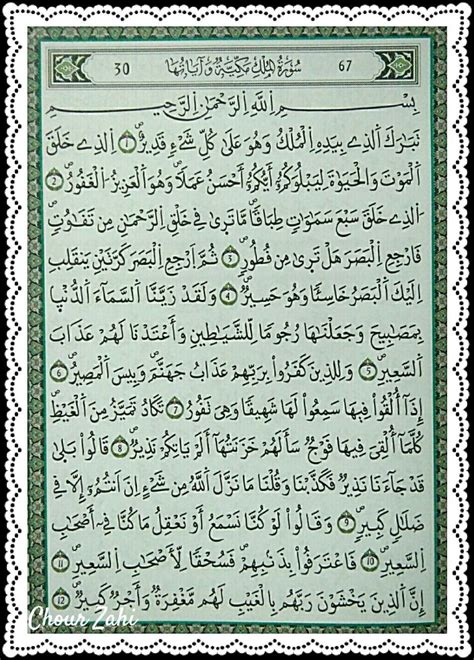 67 سُورَةُ الْمُلْكِ مَكِّيَّةٌ وَآيَاتُهَا 30
بِسْمِ اللَّهِ الرَّحْمَٰنِ الرَّحِيمِ
تَبَارَكَ الَّذِي بِيَدِهِ الْمُلْكُ وَهُوَ عَلَىٰ كُلِّ شَيْءٍ قَدِيرٌ 1 الَّذِي خَلَقَ
الْمَوْتَ وَالْحَيَاةَ لِيَبْلُوَكُمْ أَيُّكُمْ أَحْسَنُ عَمَلًا وَهُوَ الْعَزِيزُ الْغَفُورُ 2
الَّذِي خَلَقَ سَبْعَ سَمَاوَاتٍ طِبَاقًا مَّا تَرَىٰ فِي خَلْقِ الرَّحْمَٰنِ مِن تَفَاوُتٍ
فَارْجِعِ الْبَصَرَ هَلْ تَرَىٰ مِن فُطُورٍ 3 ثُمَّ ارْجِعِ الْبَصَرَ كَرَّتَيْنِ يَنقَلِبْ
إِلَيْكَ الْبَصَرُ خَاسِئًا وَهُوَ حَسِيرٌ 4 وَلَقَدْ زَيَّنَّا السَّمَاءَ الدُّنْيَا
بِمَصَابِيحَ وَجَعَلْنَاهَا رُجُومًا لِّلشَّيَاطِينِ وَأَعْتَدْنَا لَهُمْ عَذَابَ
السَّعِيرِ 5 وَلِلَّذِينَ كَفَرُوا بِرَبِّهِمْ عَذَابُ جَهَنَّمَ وَبِيسَ الْمَصِيرُ 6
إِذَا أُلْقُوا فِيهَا سَمِعُوا لَهَا شَهِيقًا وَهِيَ تَفُورُ 7 تَكَادُ تَمَيَّزُ مِنَ الْغَيْظِ
كُلَّمَا أُلْقِيَ فِيهَا فَوْجٌ سَأَلَهُمْ خَزَنَتُهَا أَلَمْ يَاتِكُمْ نَذِيرٌ 8 قَالُوا بَلَىٰ
قَدْ جَاءَنَا نَذِيرٌ فَكَذَّبْنَا وَقُلْنَا مَا نَزَّلَ اللَّهُ مِن شَيْءٍ إِنْ أَنتُمُ إِلَّا فِي
ضَلَالٍ كَبِيرٍ 9 وَقَالُوا لَوْ كُنَّا نَسْمَعُ أَوْ نَعْقِلُ مَا كُنَّا فِي أَصْحَابِ
السَّعِيرِ 10 فَاعْتَرَفُوا بِذَنبِهِمْ فَسُحْقًا لِّأَصْحَابِ السَّعِيرِ 11
إِنَّ الَّذِينَ يَخْشَوْنَ رَبَّهُم بِالْغَيْبِ لَهُم مَّغْفِرَةٌ وَأَجْرٌ كَبِيرٌ 12
Chour Zahi